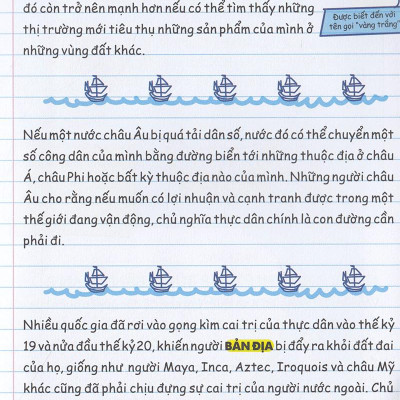 đó còn trở nên mạnh hơn nếu có thể tìm thấy những
thị trường mới tiêu thụ những sản phẩm của mình ở
những vùng đất khác.
Được biết đến với
tên gọi "vàng trắng"
Nếu một nước châu Âu bị quá tải dân số, nước đó có thể chuyển một
số công dân của mình bằng đường biển tới những thuộc địa ở châu
Á, châu Phi hoặc bất kỳ thuộc địa nào của mình. Những người châu
Âu cho rằng nếu muốn có lợi nhuận và cạnh tranh được trong một
thế giới đang vận động, chủ nghĩa thực dân chính là con đường cần
phải đi.
Nhiều quốc gia đã rơi vào gọng kìm cai trị của thực dân vào thế kỷ
19 và nửa đầu thế kỷ 20, khiến người BẢN ĐỊA bị đẩy ra khỏi đất đai
của họ, giống như người Maya, Inca, Aztec, Iroquois và châu Mỹ
khác cũng đã phải chịu đựng sự cai trị của người nước ngoài. Chủ